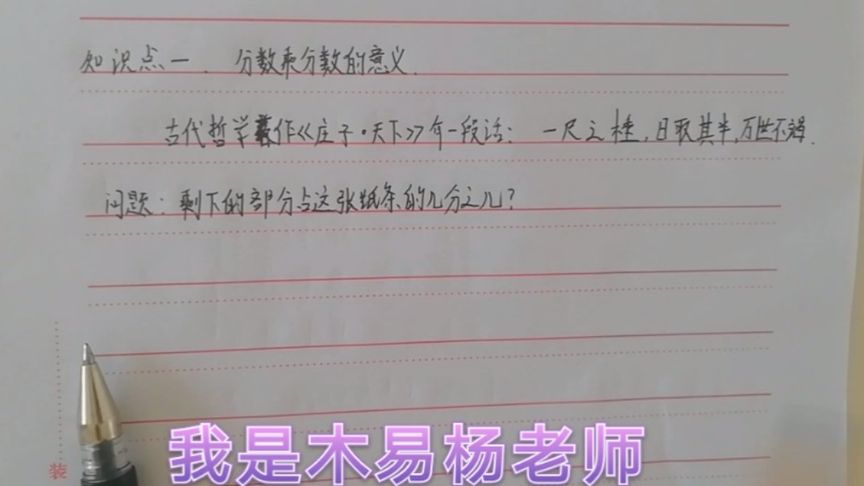 知识点一. 分数乘分数的意义.
古代哲学著作《庄子·天下》有一段话：一尺之棰,日取其半,万世不竭.
问题：剩下的部分占这张纸条的几分之几？
装
我是木易杨老师